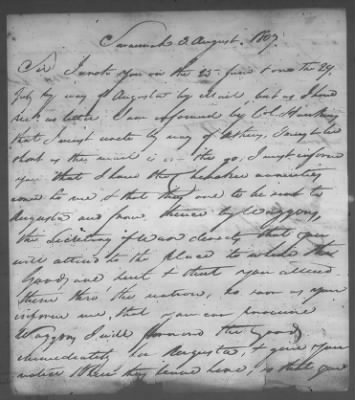 Savannah 3 August. 1807.
Sir I wrote you on the 25 June & on the 29
July by way of Augusta by Mail, but as I have
no letter I am informed by Col. Hawkins
that I must write by way of Athens, I must be
short as the mail is on the go, I must inform
you that I have the Cherokee annuities
come to me & that they are to be sent to
Augusta and from thence by Waggons,
the Secretary of War directs that you
will attend to the place to which the
Goods are sent & that you attend
them thro' the nation, so soon as you
inform me, that you can procure
Waggons I will forward the Goods
immediately for Augusta, & give you
notice when they leave here, so that you